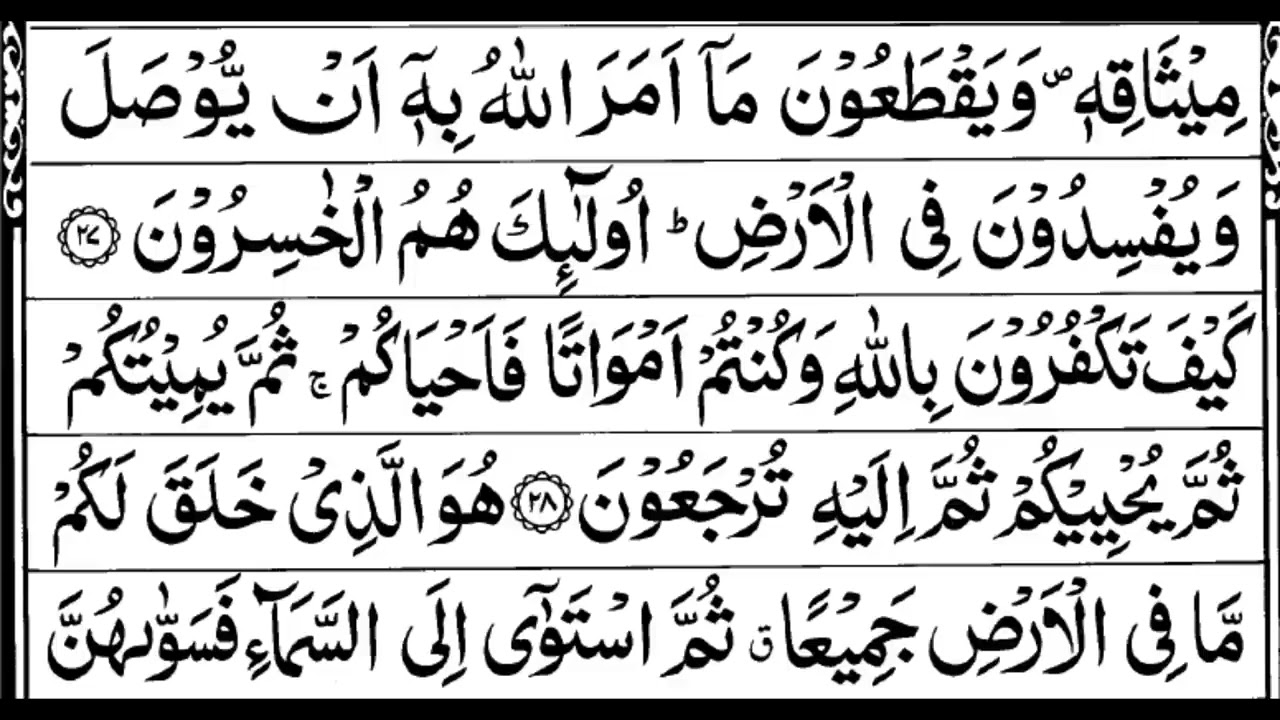 مِيْثَاقِهٖ ۪ وَيَقْطَعُوْنَ مَاۤ اَمَرَ اللّٰهُ بِهٖۤ اَنْ يُّوْصَلَ
وَيُفْسِدُوْنَ فِى الْاَرْضِ ؕ اُولٰٓئِكَ هُمُ الْخٰسِرُوْنَ ۲۷
كَيْفَ تَكْفُرُوْنَ بِاللّٰهِ وَكُنْتُمْ اَمْوَاتًا فَاَحْيَاكُمْ ۚ ثُمَّ يُمِيْتُكُمْ
ثُمَّ يُحْيِيْكُمْ ثُمَّ اِلَيْهِ تُرْجَعُوْنَ ۲۸ هُوَ الَّذِىْ خَلَقَ لَكُمْ
مَّا فِى الْاَرْضِ جَمِيْعًا ق ثُمَّ اسْتَوٰۤى اِلَى السَّمَآءِ فَسَوّٰىهُنَّ